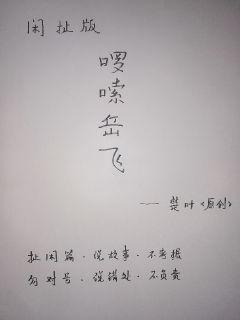 闲扯版
啰嗦岳飞
——楚叶《原创》
扯闲篇·说故事·不考据
勿对号·说错处·不负责